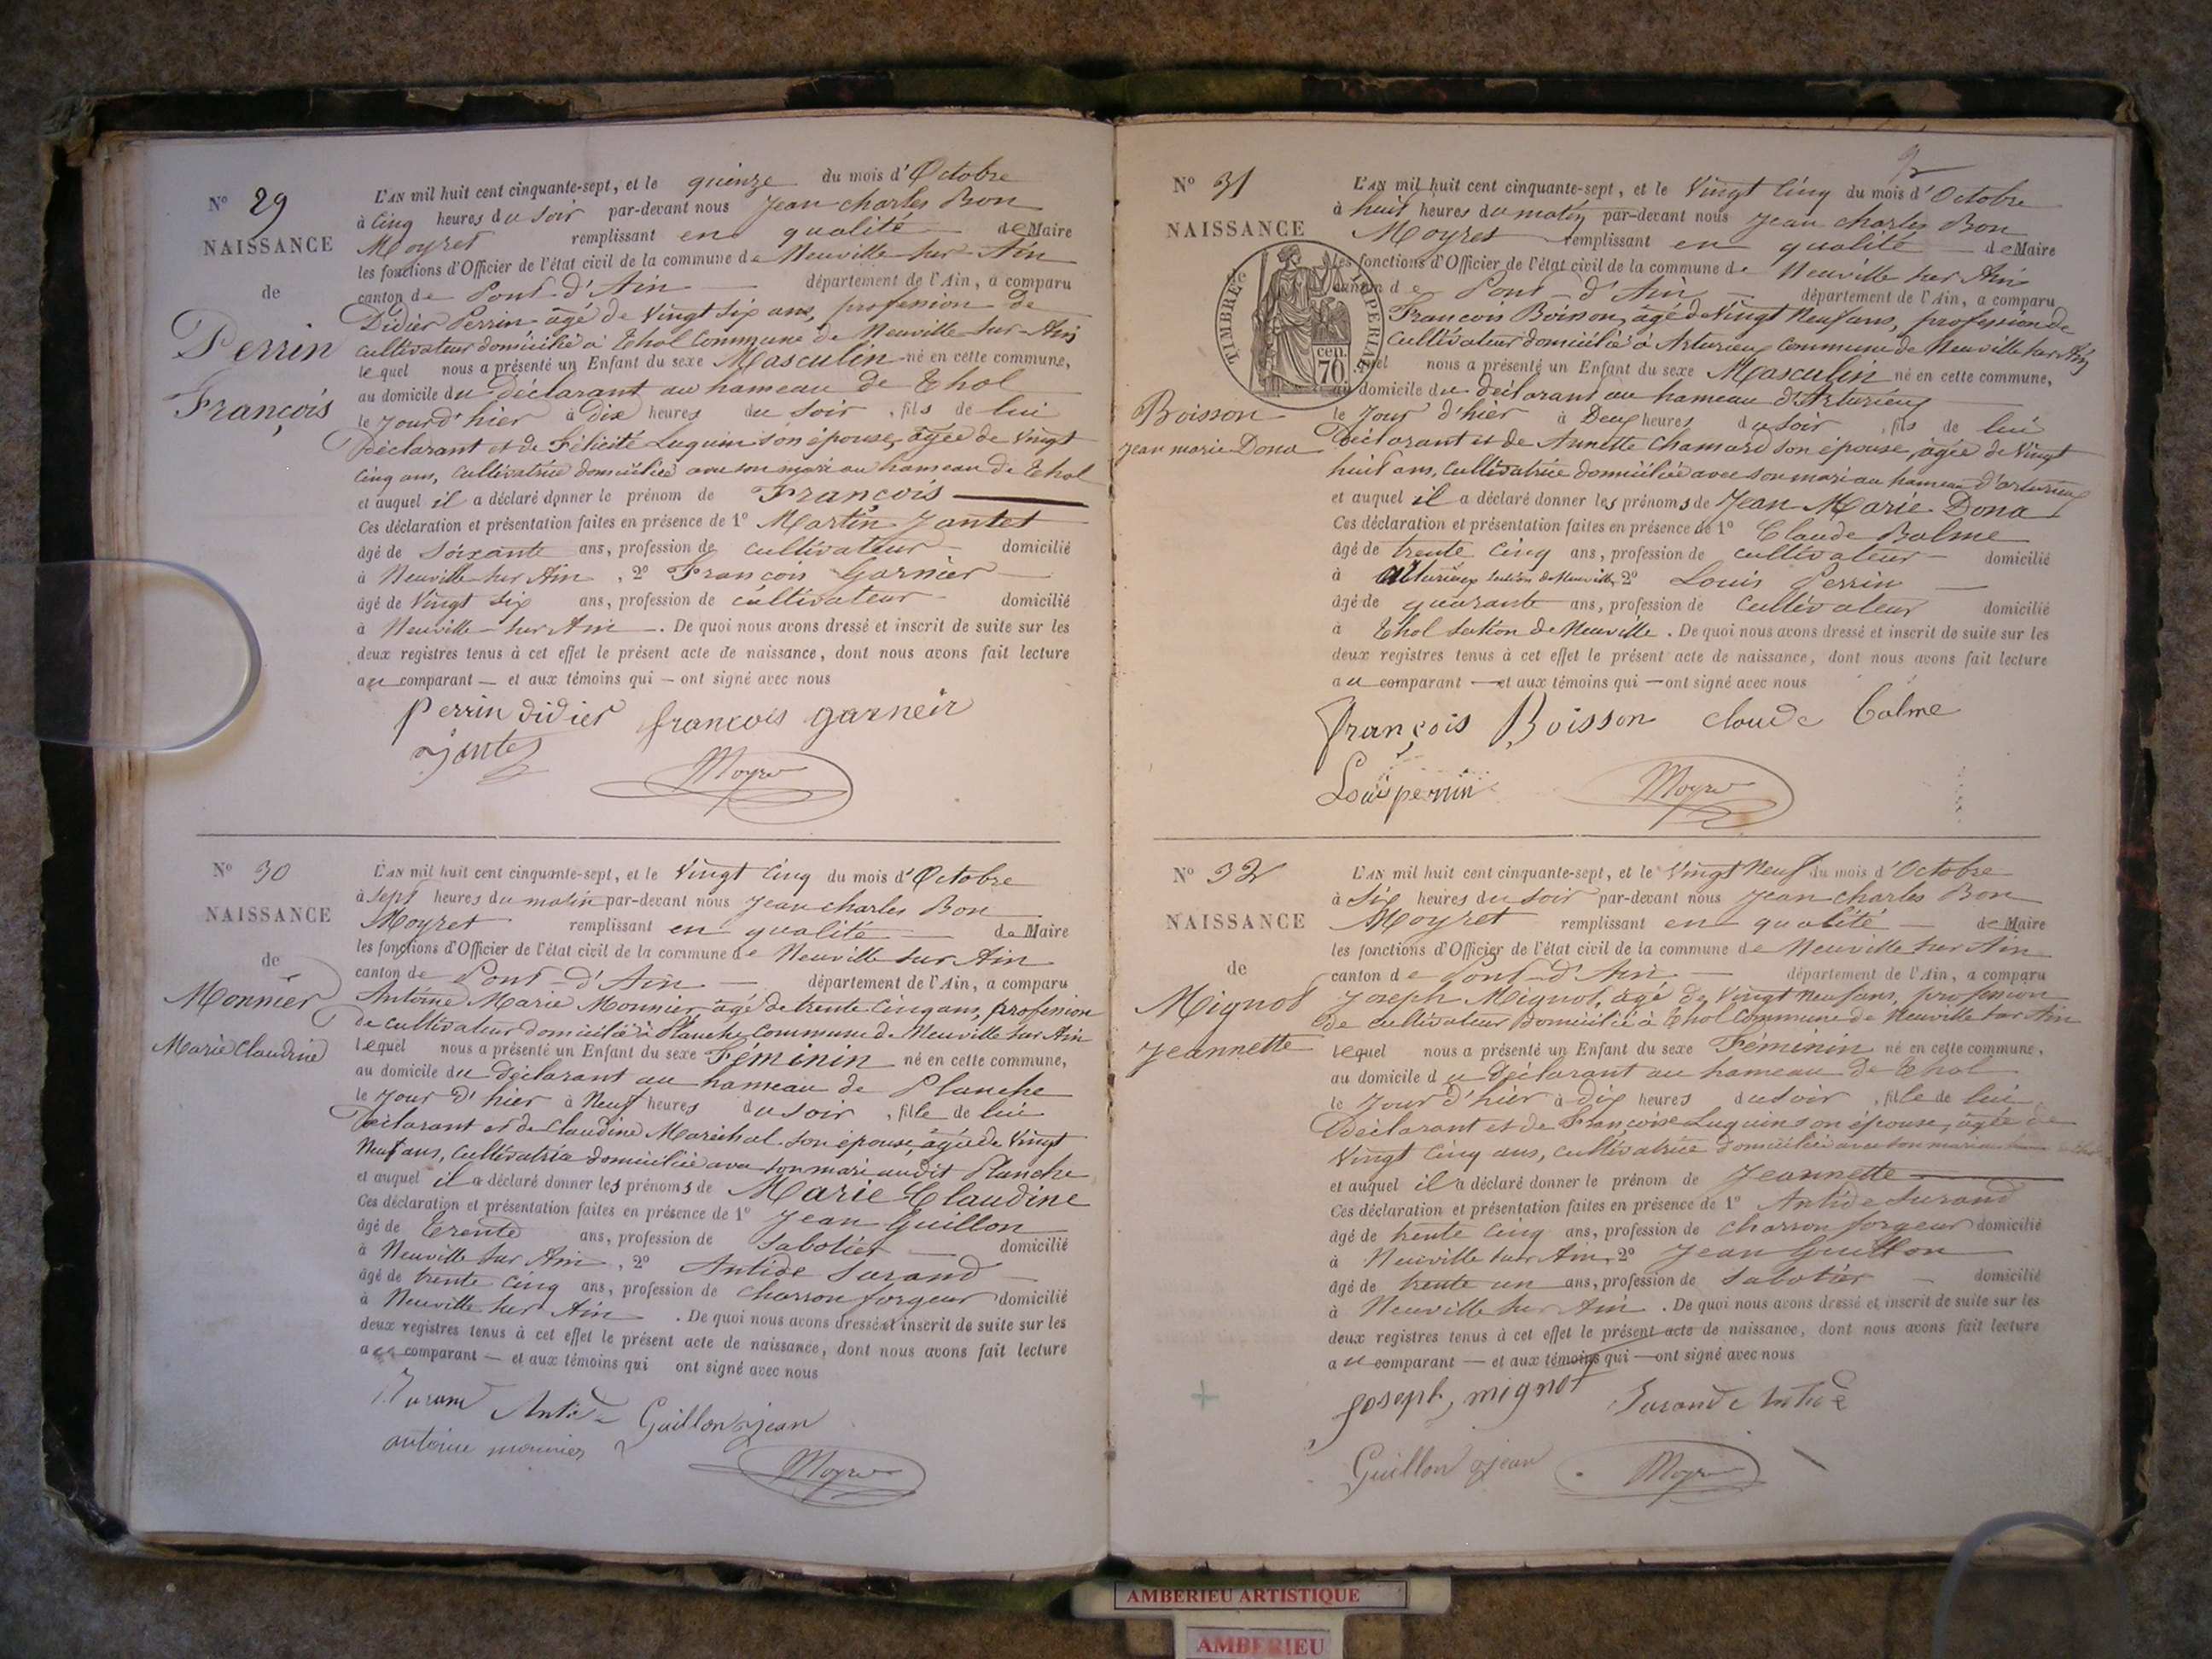 N° 29
NAISSANCE
de
Perrin
François
L'AN mil huit cent cinquante-sept, et le quinze du mois d'Octobre
à Cinq heures du Soir par-devant nous Jean Charles Bon
Moyret remplissant en qualité de Maire
les fonctions d'Officier de l'état civil de la commune de Neuville sur Ain
canton de Pont d'Ain département de l'Ain, a comparu
Didier Perrin, agé de Vingt Six ans, profession de
Cultivateur domicilié à Thol Commune de Neuville sur Ain
lequel nous a présenté un Enfant du sexe Masculin né en cette commune,
au domicile du Déclarant au hameau de Thol
le Jour d'hier à Dix heures du Soir, fils de lui
Déclarant et de Félicité Luguin son épouse, agée de Vingt
Cinq ans, Cultivatrice domiciliée avec son mari au hameau de Thol
et auquel il a déclaré donner le prénom de François
Ces déclaration et présentation faites en présence de 1° Martin Jantet
âgé de Soixante ans, profession de Cultivateur domicilié
à Neuville sur Ain, 2° François Garnier
âgé de Vingt Six ans, profession de Cultivateur domicilié
à Neuville sur Ain. De quoi nous avons dressé et inscrit de suite sur les
deux registres tenus à cet effet le présent acte de naissance, dont nous avons fait lecture
au comparant — et aux témoins qui — ont signé avec nous
Perrin didier françois garneir
Moyret
N° 30
NAISSANCE
de
Monnier
Marie Claudine
L'AN mil huit cent cinquante-sept, et le Vingt Cinq du mois d'Octobre
à Sept heures du matin par-devant nous Jean Charles Bon
Moyret remplissant en qualité de Maire
les fonctions d'Officier de l'état civil de la commune de Neuville sur Ain
canton de Pont d'Ain département de l'Ain, a comparu
Antoine Marie Monnier, agé de trente Cinq ans, profession
de cultivateur domicilié à Planche Commune de Neuville sur Ain
lequel nous a présenté un Enfant du sexe Féminin né en cette commune,
au domicile du Déclarant au hameau de Planche
le Jour d'hier à Neuf heures du Soir, fille de lui
Déclarant et de Claudine Maréchal son épouse, agée de Vingt
Neuf ans, Cultivatrice domiciliée avec son mari audit Planche
et auquel il a déclaré donner les prénoms de Marie Claudine
Ces déclaration et présentation faites en présence de 1° Jean Guillon
âgé de trente ans, profession de Sabotier domicilié
à Neuville sur Ain, 2° Antide Surand
âgé de trente Cinq ans, profession de Charron forgeur domicilié
à Neuville sur Ain. De quoi nous avons dressé et inscrit de suite sur les
deux registres tenus à cet effet le présent acte de naissance, dont nous avons fait lecture
au comparant — et aux témoins qui ont signé avec nous
Guillon jean
antoine monnier
Moyret
N° 31
NAISSANCE
TIMBRE IMPERIAL
70 cen.
Boisson
Jean marie Dona
L'AN mil huit cent cinquante-sept, et le Vingt Cinq du mois d'Octobre
à huit heures du matin par-devant nous Jean Charles Bon
Moyret remplissant en qualité de Maire
les fonctions d'Officier de l'état civil de la commune de Neuville sur Ain
canton de Pont d'Ain département de l'Ain, a comparu
François Boisson, agé de Vingt Neuf ans, profession de
Cultivateur domicilié à Arturieux Commune de Neuville sur Ain
quel nous a présenté un Enfant du sexe Masculin né en cette commune,
au domicile du déclarant au hameau d'Arturieux
le Jour d'hier à Deux heures du Soir, fils de lui
Déclarant et de Annette Chamard son épouse, agée de Vingt
huit ans, Cultivatrice domiciliée avec son mari au hameau d'arturieux
et auquel il a déclaré donner les prénoms de Jean Marie Dona
Ces déclaration et présentation faites en présence de 1° Claude Balme
âgé de trente Cinq ans, profession de Cultivateur domicilié
à Arturieux Section de Neuville, 2° Louis Perrin
âgé de quarante ans, profession de Cultivateur domicilié
à Thol Section de Neuville. De quoi nous avons dressé et inscrit de suite sur les
deux registres tenus à cet effet le présent acte de naissance, dont nous avons fait lecture
au comparant — et aux témoins qui — ont signé avec nous
françois Boisson claude balme
Louis perrin Moyret
N° 32
NAISSANCE
de
Mignot
Jeannette
L'AN mil huit cent cinquante-sept, et le Vingt Neuf du mois d'Octobre
à Six heures du Soir par-devant nous Jean Charles Bon
Moyret remplissant en qualité de Maire
les fonctions d'Officier de l'état civil de la commune de Neuville sur Ain
canton de Pont d'Ain département de l'Ain, a comparu
Joseph Mignot, agé de Vingt Neuf ans, profession
de Cultivateur domicilié à Thol Commune de Neuville sur Ain
lequel nous a présenté un Enfant du sexe Féminin né en cette commune,
au domicile du Déclarant au hameau de Thol
le Jour d'hier à dix heures du Soir, fille de lui
Déclarant et de Françoise Luguin son épouse, agée de
Vingt Cinq ans, cultivatrice domiciliée avec son mari
et auquel il a déclaré donner le prénom de Jeannette
Ces déclaration et présentation faites en présence de 1° Antide Surand
âgé de trente Cinq ans, profession de Charron forgeur domicilié
à Neuville sur Ain, 2° Jean Guillon
âgé de trente un ans, profession de Sabotier domicilié
à Neuville sur Ain. De quoi nous avons dressé et inscrit de suite sur les
deux registres tenus à cet effet le présent acte de naissance, dont nous avons fait lecture
au comparant — et aux témoins qui — ont signé avec nous
joseph mignot Surand Antide
Guillon jean Moyret
AMBERIEU ARTISTIQUE
AMBERIEU